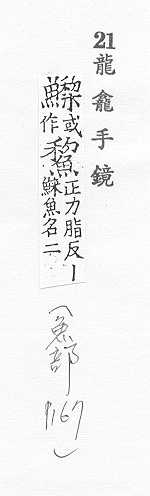 21龍龕手鏡
鯬或作𩺬正力脂反丨鯠魚名二
(魚部 p167)